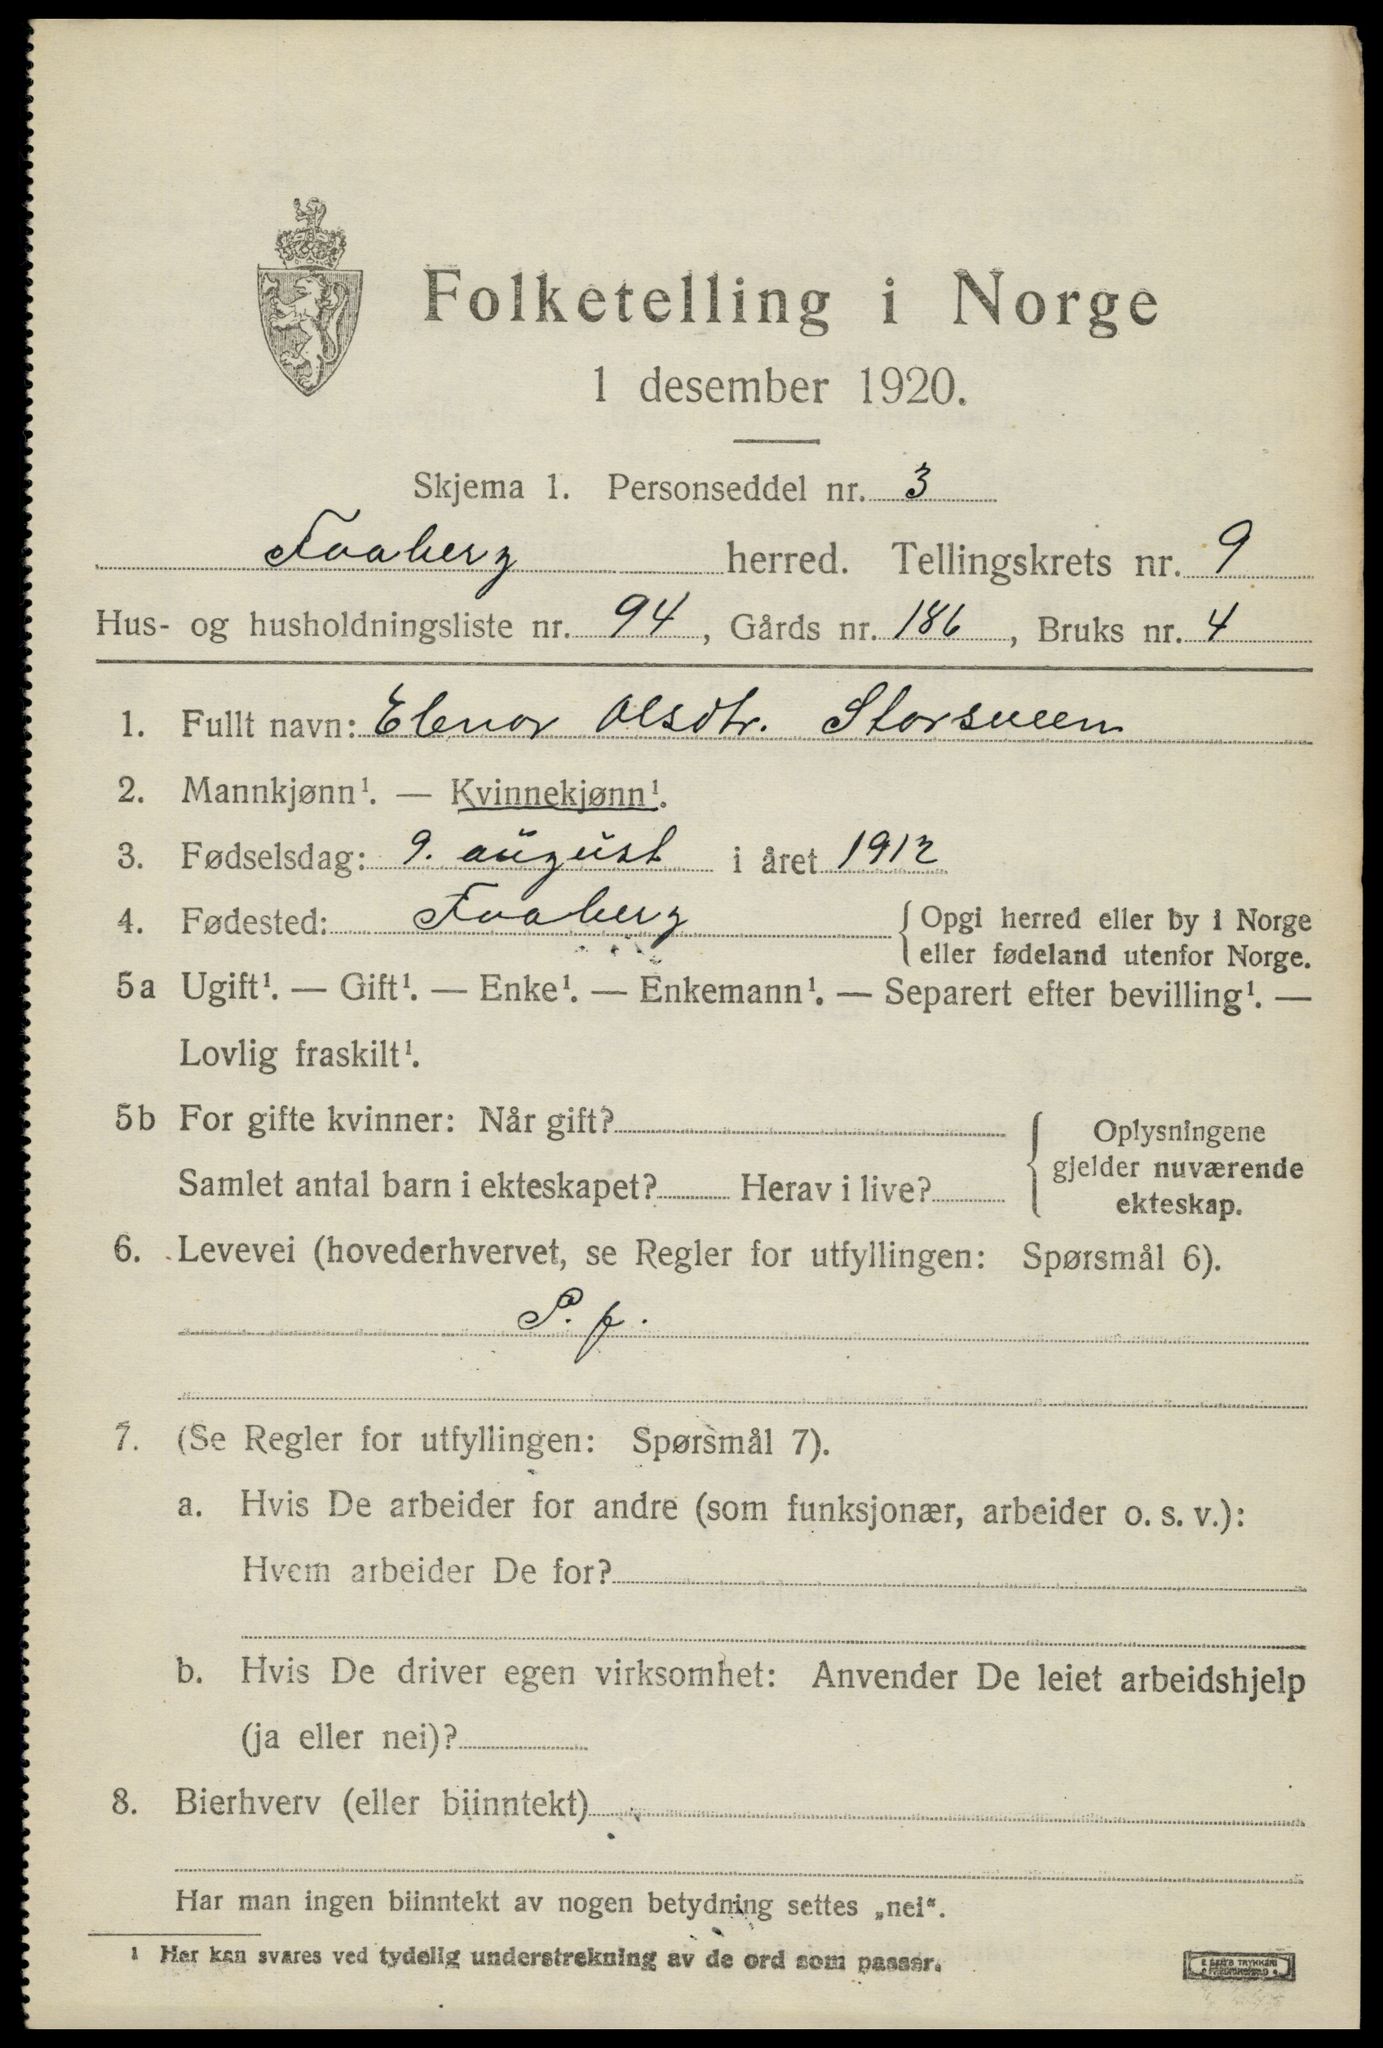 Folketelling i Norge
1 desember 1920.
Skjema 1. Personseddel nr. 3
Faaberg herred. Tellingskrets nr. 9
Hus- og husholdningsliste nr. 94, Gårds nr. 186, Bruks nr. 4
1. Fullt navn: Elenor Olsdtr. Storsveen
2. Mannkjønn¹. — Kvinnekjønn¹.
3. Fødselsdag: 9. august i året 1912
4. Fødested: Faaberg { Opgi herred eller by i Norge
eller fødeland utenfor Norge.
5a Ugift¹. — Gift¹. — Enke¹. — Enkemann¹. — Separert efter bevilling¹. —
Lovlig fraskilt¹.
5b For gifte kvinner: Når gift?
Samlet antal barn i ekteskapet? Herav i live?
{ Oplysningene
gjelder nuværende
ekteskap.
6. Levevei (hovederhvervet, se Regler for utfyllingen: Spørsmål 6).
S. f.
7. (Se Regler for utfyllingen: Spørsmål 7).
a. Hvis De arbeider for andre (som funksjonær, arbeider o. s. v.):
Hvem arbeider De for?
b. Hvis De driver egen virksomhet: Anvender De leiet arbeidshjelp
(ja eller nei)?
8. Bierhverv (eller biinntekt)
Har man ingen biinntekt av nogen betydning settes „nei“.
1 Her kan svares ved tydelig understrekning av de ord som passer.